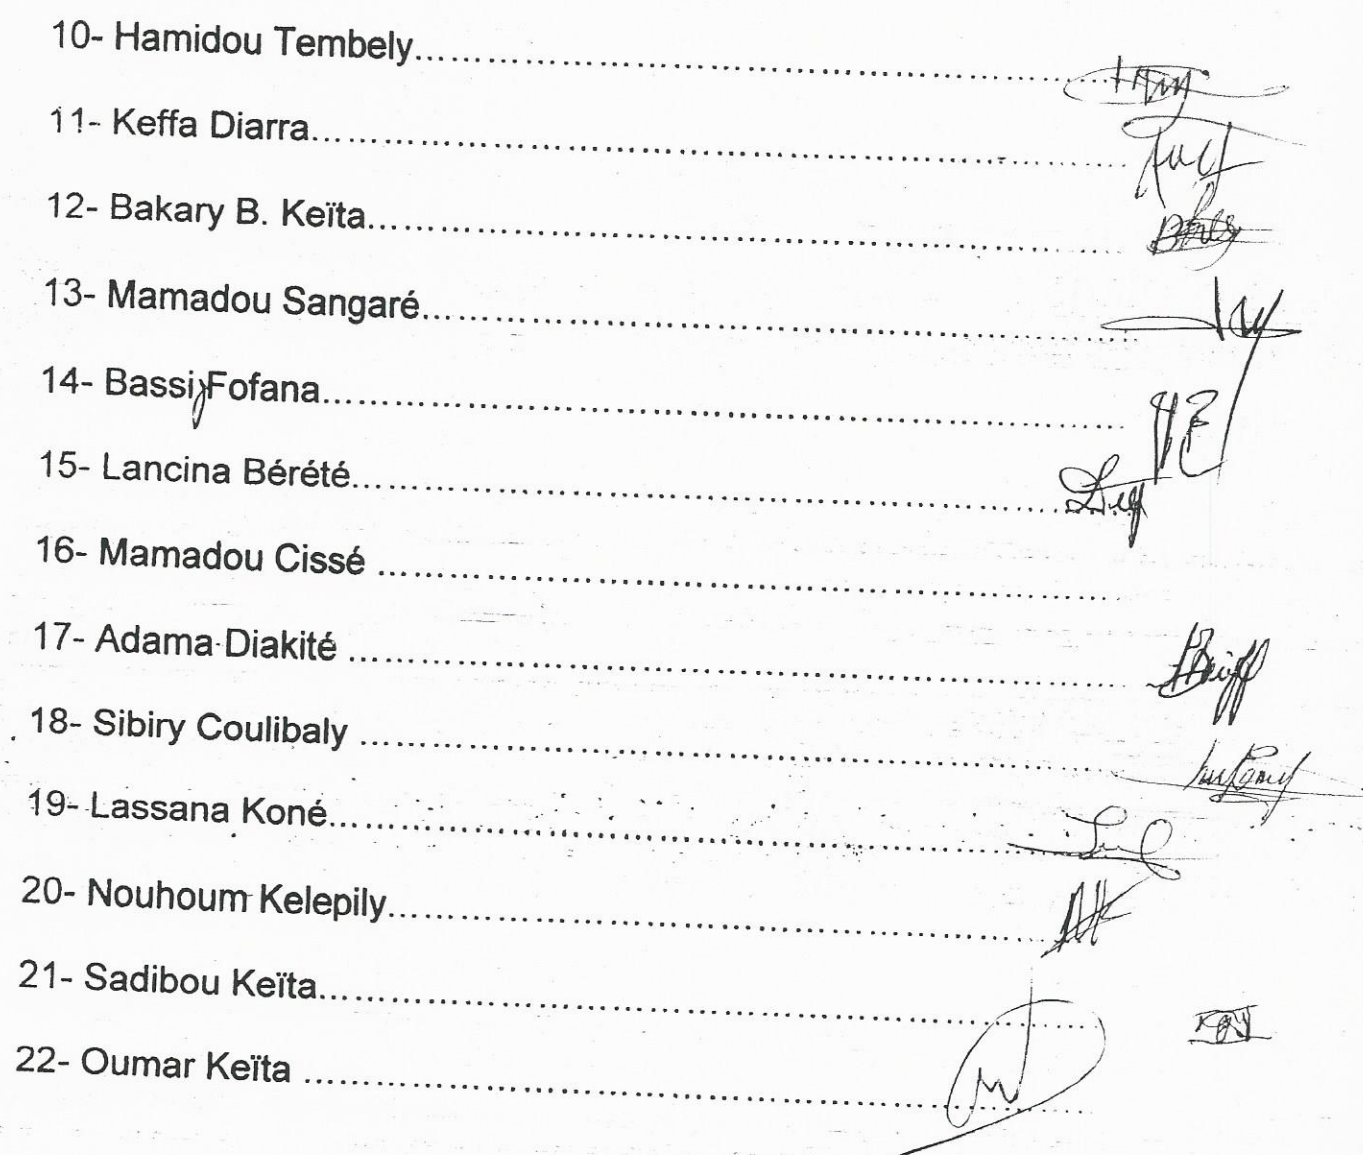 10- Hamidou Tembely..........
11- Keffa Diarra..........
12- Bakary B. Keïta..........
13- Mamadou Sangaré..........
14- Bassi Fofana..........
15- Lancina Bérété..........
16- Mamadou Cissé ..........
17- Adama Diakité ..........
18- Sibiry Coulibaly ..........
19- Lassana Koné..........
20- Nouhoum Kelepily..........
21- Sadibou Keïta..........
22- Oumar Keïta ..........